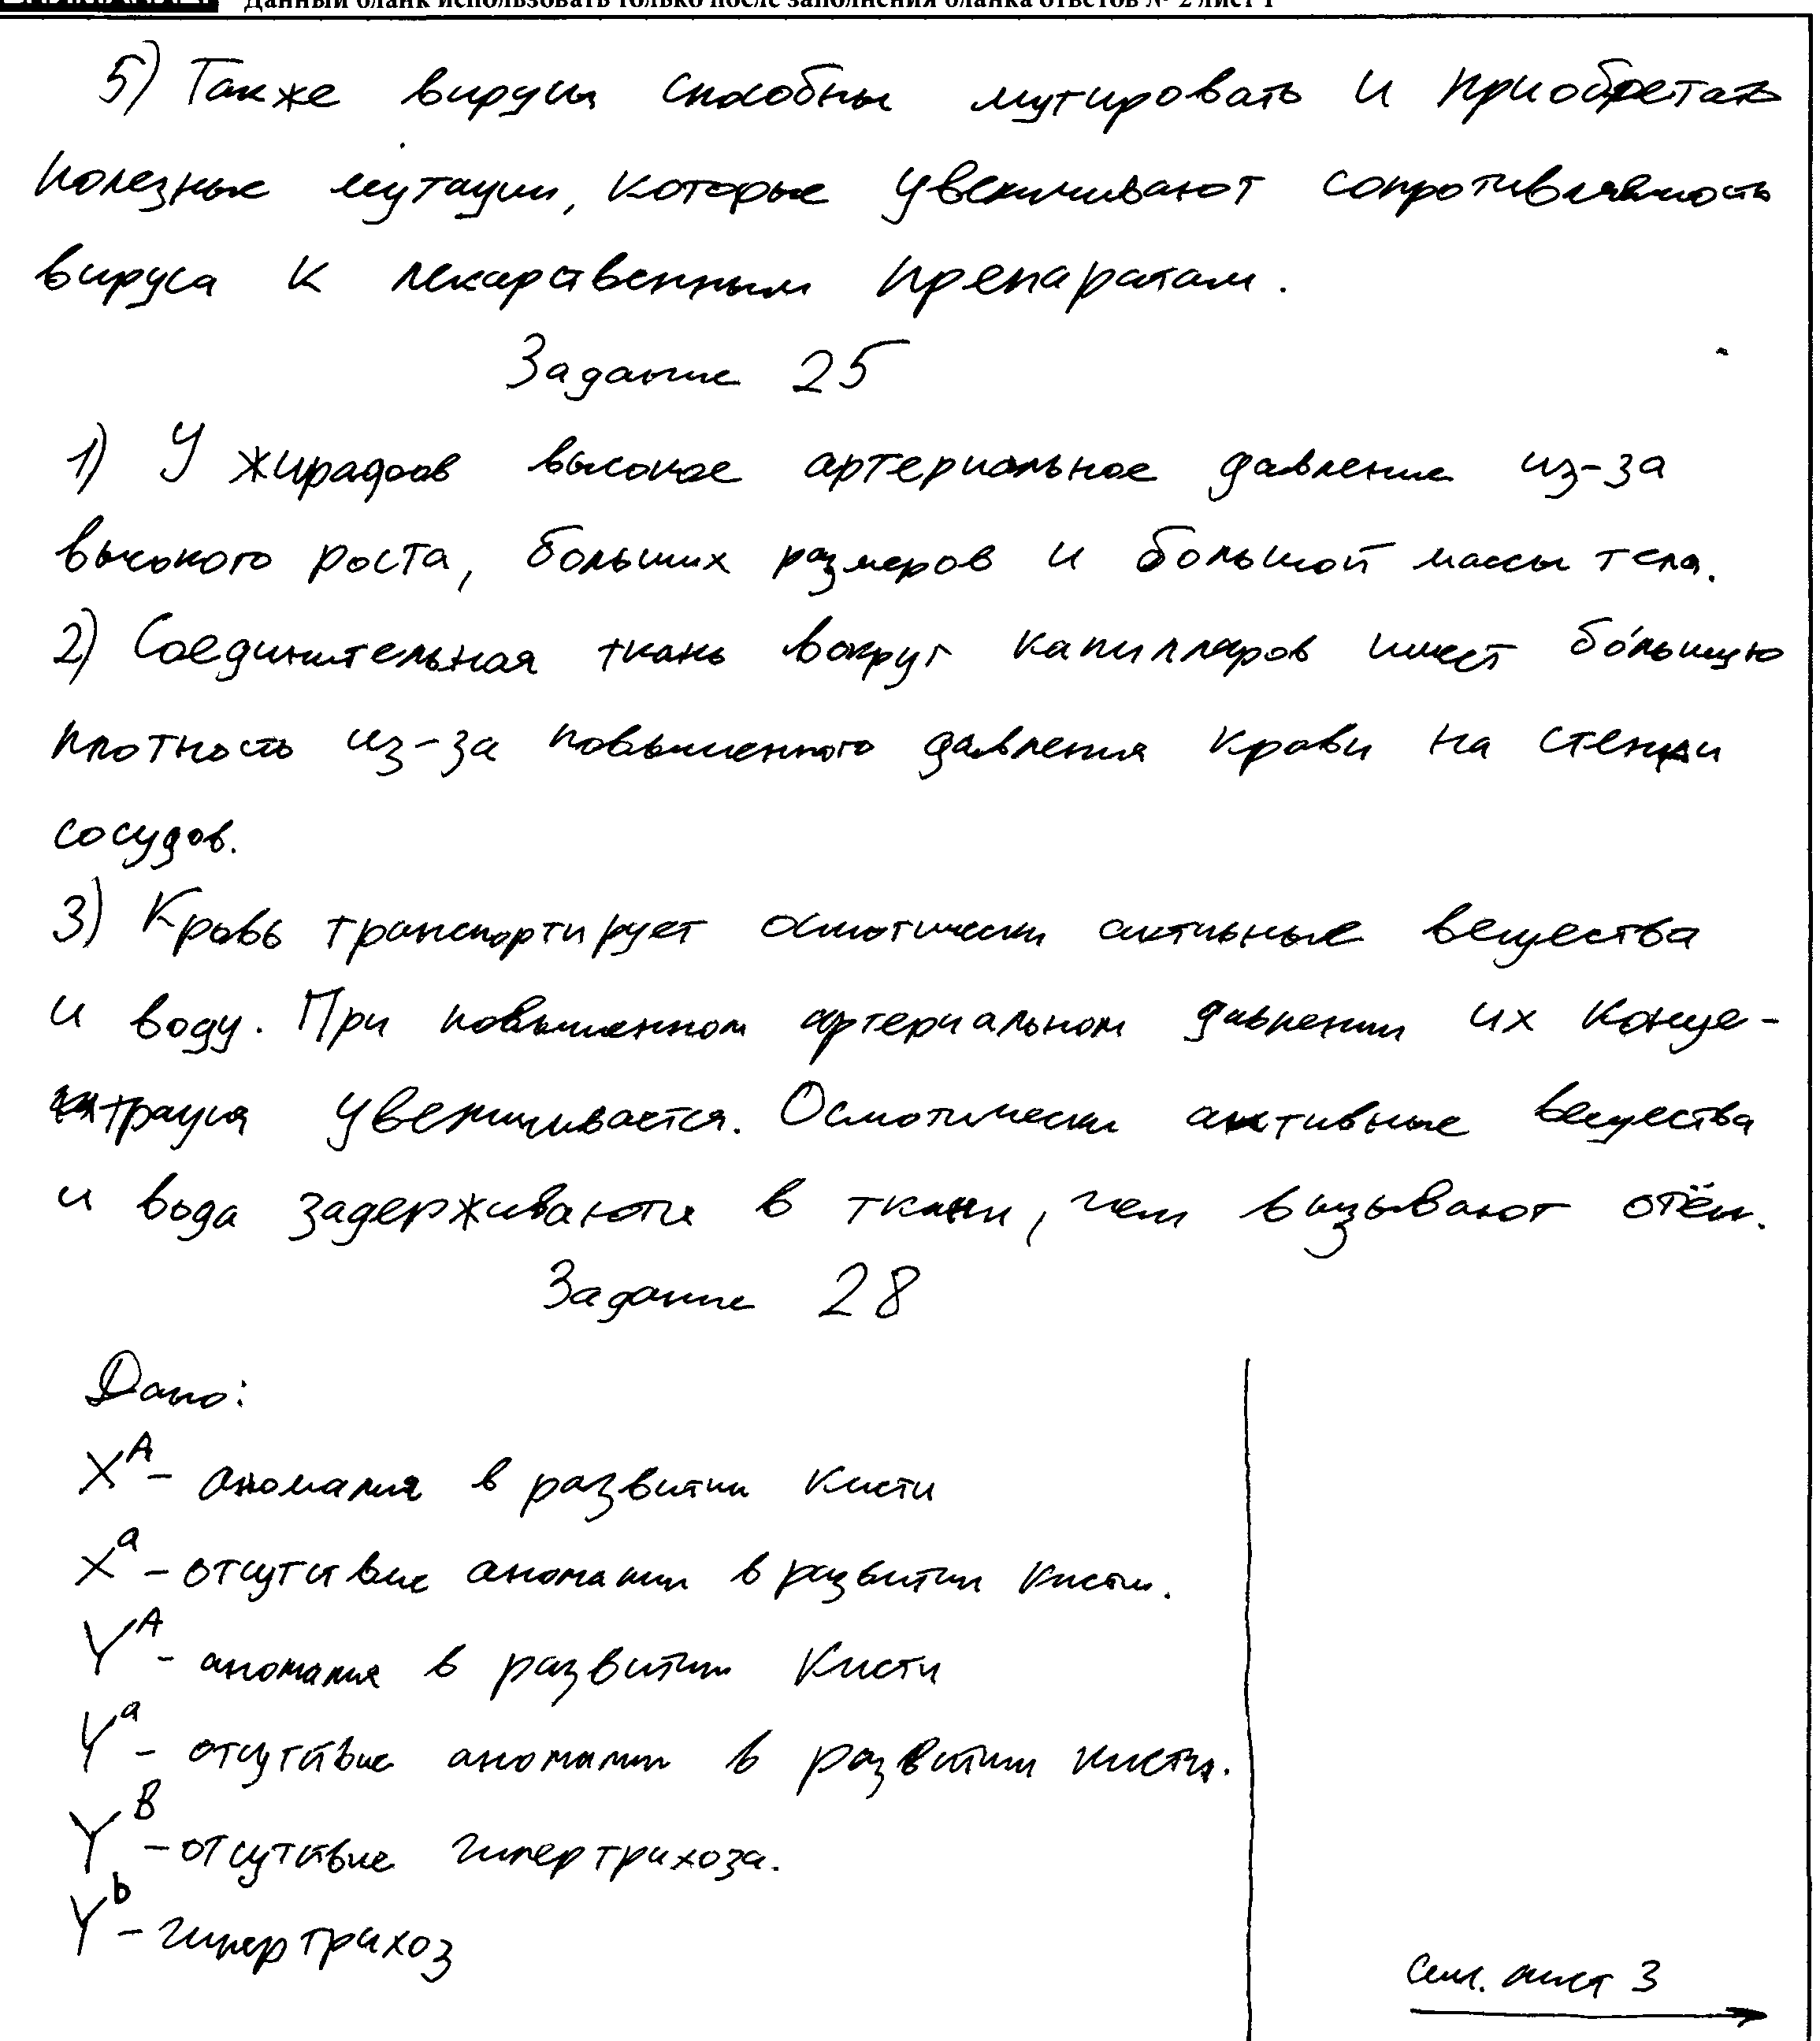 Данный бланк использовать только после заполнения бланка ответов № 2 лист 1
5) Также вирусы способны мутировать и приобретать
полезные мутации, которые увеличивают сопротивляемость
вируса к лекарственным препаратам.
Задание 25
1) У жирафов высокое артериальное давление из-за
высокого роста, больших размеров и большой массы тела.
2) Соединительная ткань вокруг капилляров имеет бо́льшую
плотность из-за повышенного давления крови на стенки
сосудов.
3) Кровь транспортирует осмотически активные вещества
и воду. При повышенном артериальном давлении их конце-
трация увеличивается. Осмотически активные вещества
и вода задерживаются в ткани, чем вызывают отёк.
Задание 28
Дано:
X^A - аномалия в развитии кисти
X^a - отсутствие аномалии в развитии кисти.
Y^A - аномалия в развитии кисти
Y^a - отсутствие аномалии в развитии кисти.
Y^B - отсутствие гипертрихоза.
Y^b - гипертрихоз
См. лист 3